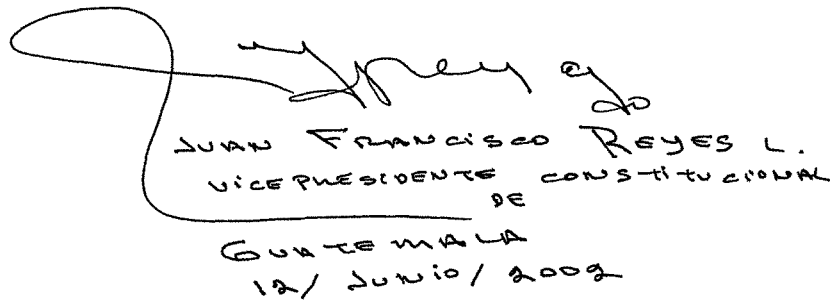 JUAN FRANCISCO REYES L.
VICEPRESIDENTE CONSTITUCIONAL
DE
GUATEMALA
12/JUNIO/2002